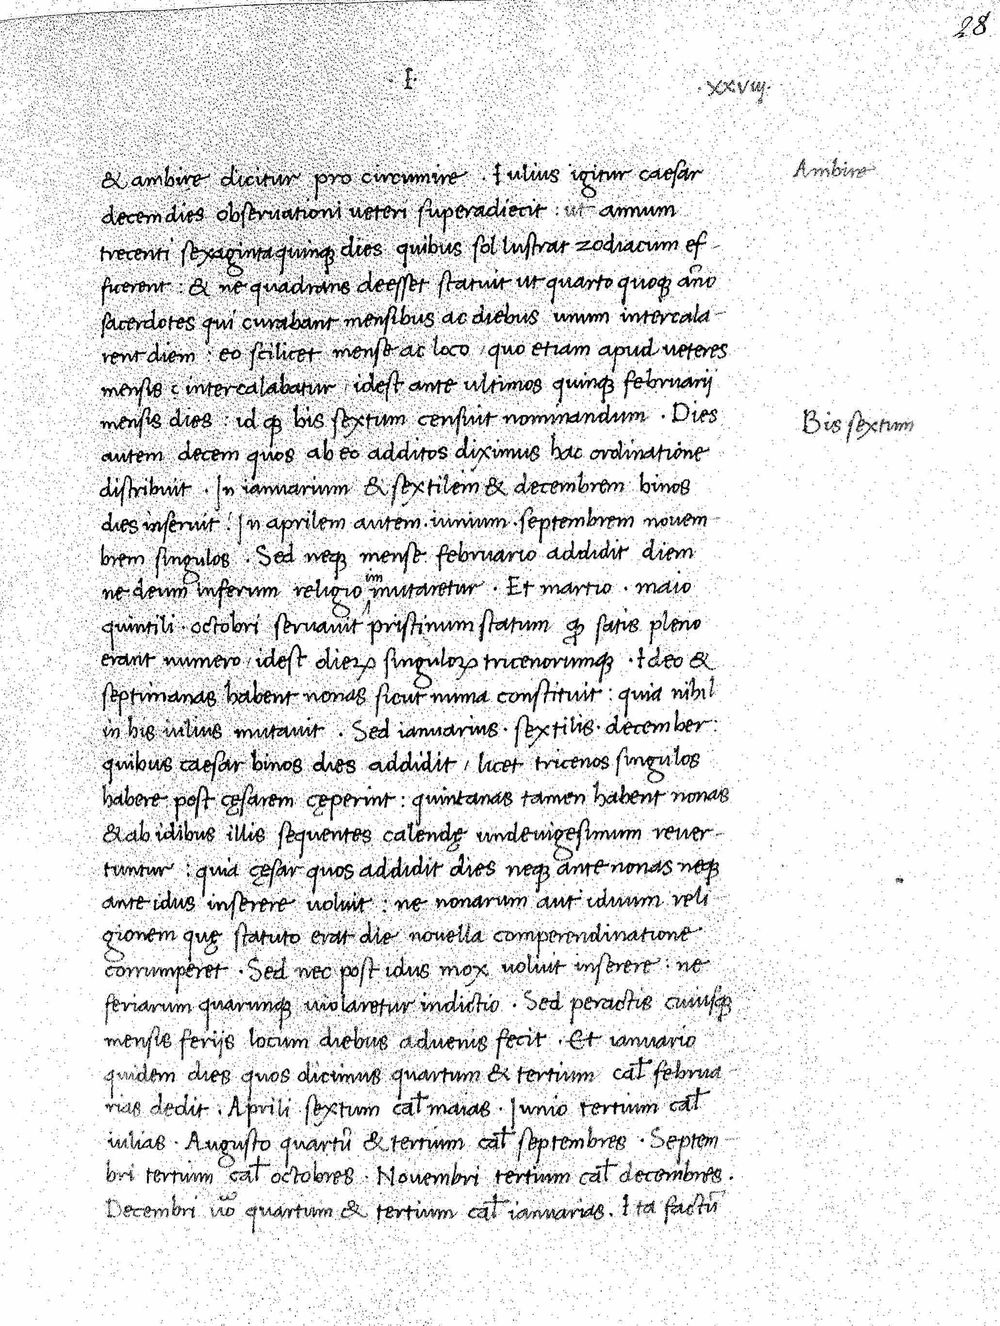 28
· I ·
· xxviij ·
& ambire dicitur pro circumire . Iulius igitur caesar
Ambire
decem dies observationi veteri superadiecit : ut annum
trecenti sexaginta quinqꝫ dies quibus sol lustrat zodiacum ef-
ficerent : & ne quadrans deesset statuit ut quarto quoqꝫ año
sacerdotes qui curabant mensibus ac diebus unum intercala-
rent diem : eo scilicet mense ac loco / quo etiam apud veteres
mensis c intercalabatur / idest ante ultimos quinqꝫ februarij
mensis dies : id qꝫ bis sextum censuit nominandum . Dies
Bis sextum
autem decem quos ab eo additos diximus hac ordinatione
distribuit . In ianuarium & sextilem & decembrem binos
dies inseruit . In aprilem autem . iunium . septembrem novem-
brem singulos . Sed neqꝫ mense februario addidit diem
im
ne deum inferum religio mutaretur . Et martio . maio
quintili . octobri servavit pristinum statum qꝫ satis pleno
erant numero / idest dieꝝ singuloꝝ tricenorumqꝫ . Ideo &
septimanas habent nonas sicut numa constituit : quia nihil
in his iulius mutavit . Sed ianuarius . sextilis . december :
quibus caesar binos dies addidit / licet tricenos singulos
habere post cęsarem cęperint : quintanas tamen habent nonas
& ab idibus illis sequentes calendę undevigesimum rever-
tuntur : quia cęsar quos addidit dies neqꝫ ante nonas neqꝫ
ante idus inserere voluit : ne nonarum aut iduum reli-
gionem quę statuto erat die novella comperendinatione
corrumperet . Sed nec post idus mox voluit inserere . ne
feriarum quarunqꝫ violaretur indictio . Sed peractis cuiusqꝫ
mensis ferijs locum diebus advenis fecit . Et ianuario
quidem dies quos dicimus quartum & tertium cal̄ februa-
rias dedit . Aprili sextum cal̄ maias . Junio tertium cal̄
iulias . Augusto quartū & tertium cal̄ septembres . Septem-
bri tertium cal̄ octobres . Novembri tertium cal̄ decembres .
Decembri vō quartum & tertium cal̄ ianuarias . Ita factū